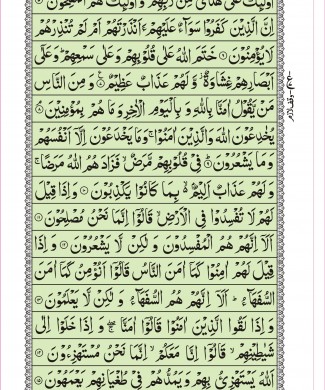 اُولٰٓئِكَ عَلٰى هُدًى مِّنْ رَّبِّهِمْ وَ اُولٰٓئِكَ هُمُ الْمُفْلِحُوْنَ ۝
اِنَّ الَّذِيْنَ كَفَرُوْا سَوَآءٌ عَلَيْهِمْ ءَاَنْذَرْتَهُمْ اَمْ لَمْ تُنْذِرْهُمْ
لَا يُؤْمِنُوْنَ ۝ خَتَمَ اللّٰهُ عَلٰى قُلُوْبِهِمْ وَ عَلٰى سَمْعِهِمْ ؕ وَ عَلٰٓى
اَبْصَارِهِمْ غِشَاوَةٌ ؗ وَّ لَهُمْ عَذَابٌ عَظِيْمٌ ۝ وَ مِنَ النَّاسِ
مَنْ يَّقُوْلُ اٰمَنَّا بِاللّٰهِ وَ بِالْيَوْمِ الْاٰخِرِ وَ مَا هُمْ بِمُؤْمِنِيْنَ ۝
يُخٰدِعُوْنَ اللّٰهَ وَ الَّذِيْنَ اٰمَنُوْا ۚ وَ مَا يَخْدَعُوْنَ اِلَّاۤ اَنْفُسَهُمْ
وَ مَا يَشْعُرُوْنَ ۝ فِيْ قُلُوْبِهِمْ مَّرَضٌ ۙ فَزَادَهُمُ اللّٰهُ مَرَضًا ۚ
وَ لَهُمْ عَذَابٌ اَلِيْمٌۢ ۙ بِمَا كَانُوْا يَكْذِبُوْنَ ۝ وَ اِذَا قِيْلَ
لَهُمْ لَا تُفْسِدُوْا فِي الْاَرْضِ ۙ قَالُوْۤا اِنَّمَا نَحْنُ مُصْلِحُوْنَ ۝
اَلَاۤ اِنَّهُمْ هُمُ الْمُفْسِدُوْنَ وَ لٰكِنْ لَّا يَشْعُرُوْنَ ۝ وَ اِذَا
قِيْلَ لَهُمْ اٰمِنُوْا كَمَاۤ اٰمَنَ النَّاسُ قَالُوْۤا اَنُؤْمِنُ كَمَاۤ اٰمَنَ
السُّفَهَآءُ ؕ اَلَاۤ اِنَّهُمْ هُمُ السُّفَهَآءُ وَ لٰكِنْ لَّا يَعْلَمُوْنَ ۝
وَ اِذَا لَقُوا الَّذِيْنَ اٰمَنُوْا قَالُوْۤا اٰمَنَّا ۖۚ وَ اِذَا خَلَوْا اِلٰى
شَيٰطِيْنِهِمْ ۙ قَالُوْۤا اِنَّا مَعَكُمْ ۙ اِنَّمَا نَحْنُ مُسْتَهْزِءُوْنَ ۝
اَللّٰهُ يَسْتَهْزِئُ بِهِمْ وَ يَمُدُّهُمْ فِيْ طُغْيَانِهِمْ يَعْمَهُوْنَ ۝